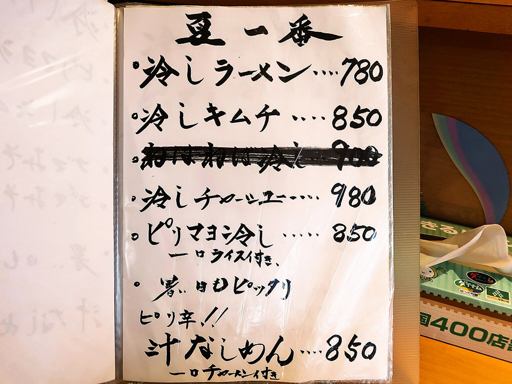 夏一番
・冷しラーメン‥‥780
・冷しキムチ‥‥850
・ねばねば冷し 900
・冷しチャーシュー‥‥980
・ピリマヨ冷し‥‥‥850
一口ライス付き、
・暑い日もピッタリ
ピリ辛!!
汁なしめん‥‥850
一口チャーハン付き
国400店